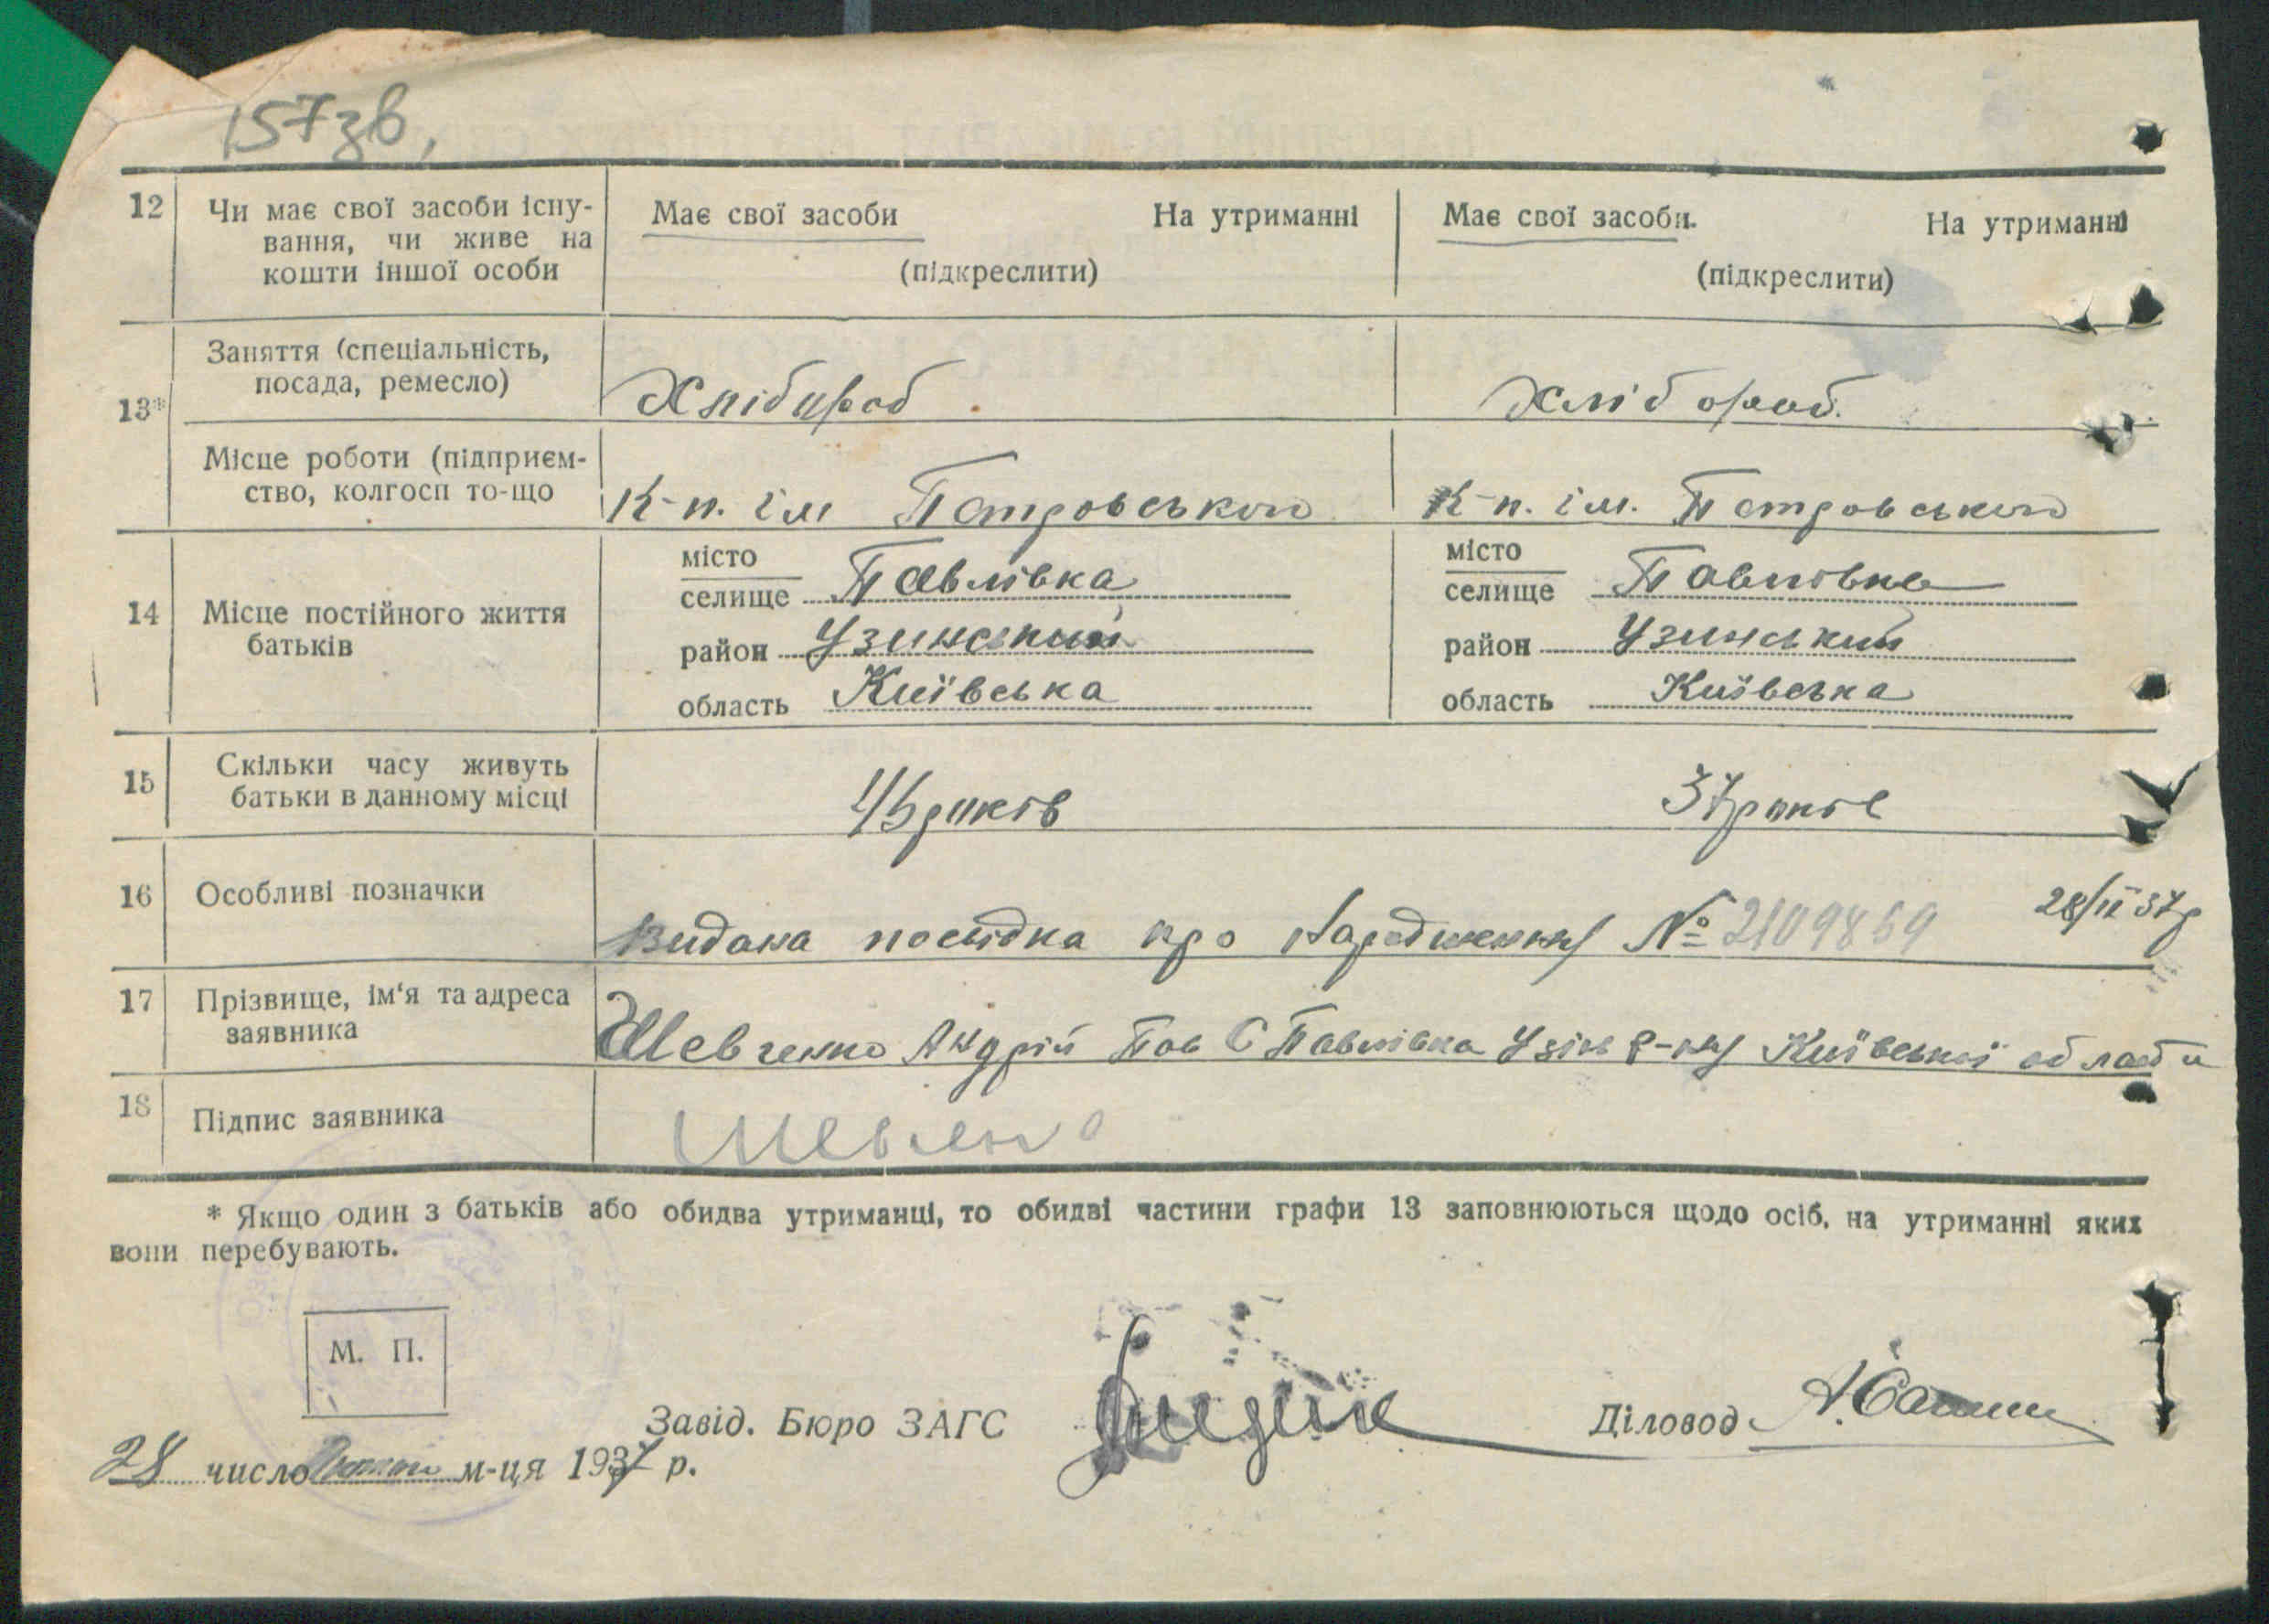 157зв,
12 Чи має свої засоби існу-
вання, чи живе на
кошти іншої особи
Має свої засоби На утриманні
(підкреслити)
Має свої засоби. На утриманні
(підкреслити)
13*
Заняття (спеціальність,
посада, ремесло)
Хлібороб
Хлібороб.
Місце роботи (підприєм-
ство, колгосп то-що
К-п. ім Петровського
К-п. ім. Петровського
14 Місце постійного життя
батьків
місто
селище Павлівка
район Узинський
область Київська
місто
селище Павлівка
район Узинський
область Київська
15 Скільки часу живуть
батьки в данному місці
45 років
37 років
16 Особливі позначки
Видана посвідка про народження № 2109859 28/II 37р
17 Прізвище, ім'я та адреса
заявника
Шевченко Андрій Пав С Павлівка Узін р-ну Київської області
18 Підпис заявника
Шевченко
* Якщо один з батьків або обидва утриманці, то обидві частини графи 13 заповнюються щодо осіб, на утриманні яких
вони перебувають.
М. П.
Завід. Бюро ЗАГС
Діловод
28 число м-ця 1937 р.